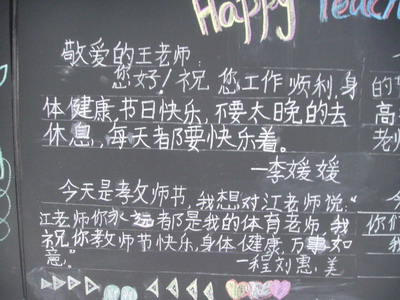 Happy Teach
敬爱的王老师:
您好!祝您工作顺利,身
体健康,节日快乐,不要太晚的去
休息,每天都要快乐着。
—李媛媛
今天是教师节,我想对江老师说:“
江老师你永远都是我的体育老师,我
祝你教师节快乐,身体健康,万事如
意。”
—程刘惠.美
的
高
老师
你们